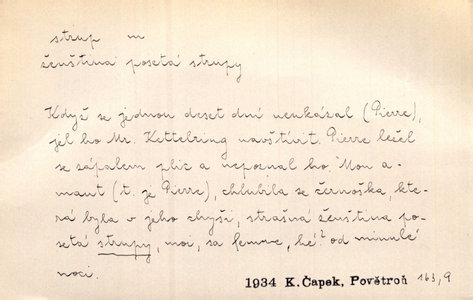 strup m
ženština posetá strupy
Když se jednou deset dní neukázal (Pierre),
jel ho Mr. Kettelring navštívit. Pierre ležel
se zápalem plic a nepoznal ho. "Mon a-
mant (t. j. Pierre), chlubila se černoška, kte-
rá byla v jeho chýši, strašná ženština po-
setá strupy, moi, sa femme, hé?" od minulé
noci.
1934 K. Čapek, Povětroň 163,9